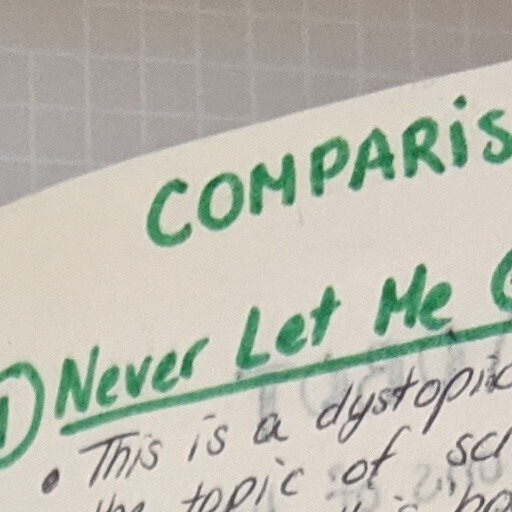 COMPARIS
1 Never Let Me
• This is a dystopic
the topic of sch